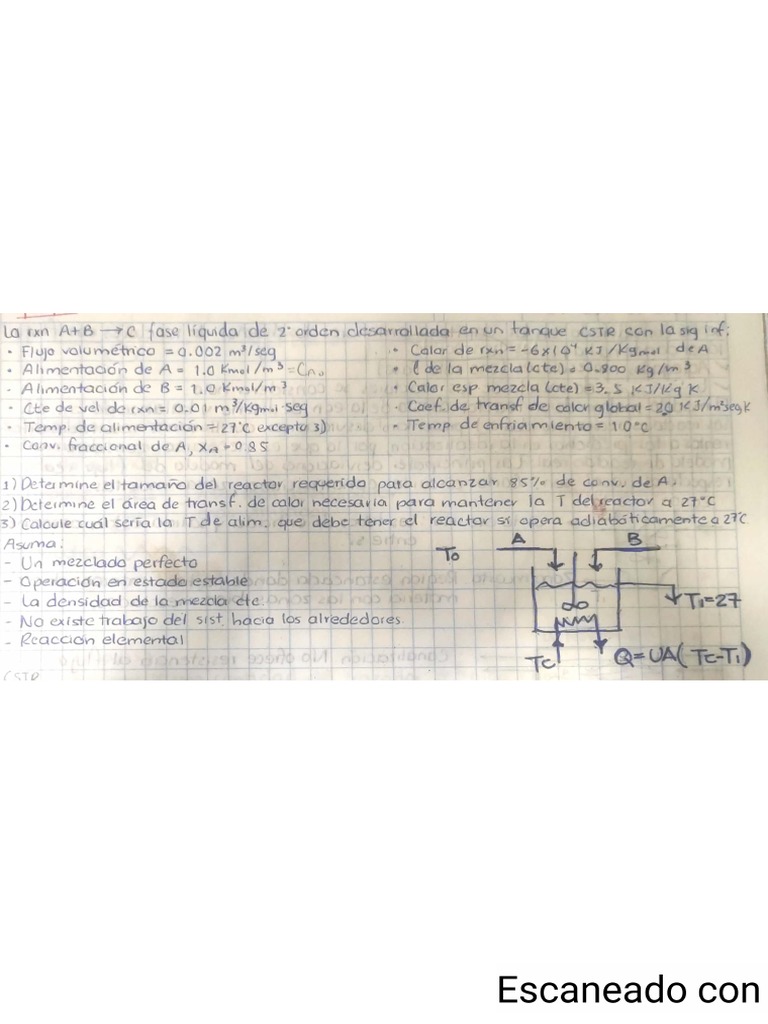 La rxn A+B → C fase líquida de 2° orden desarrollada en un tanque CSTR con la sig inf:
• Flujo volumétrico = 0.002 m³/seg
• Alimentación de A = 1.0 Kmol/m³ = CA₀
- Alimentación de B = 1.0 Kmol/m³
• Cte de vel de rxn = 0.01 m³/Kgmol·seg
• Temp. de alimentación = 27°C excepto 3)
• Conv. fraccional de A, XA = 0.85
• Calor de rxn = -6x10⁴ KJ/Kgmol de A
• ρ de la mezcla (cte) = 0.900 Kg/m³
• Calor esp mezcla (cte) = 3.5 KJ/Kg K
• Coef. de transf de calor global = 20 KJ/m²seg K
- Temp de enfriamiento = 10°C
1) Determine el tamaño del reactor requerido para alcanzar 85% de conv. de A.
2) Determine el área de transf. de calor necesaria para mantener la T del reactor a 27°C
3) Calcule cuál sería la T de alim. que debe tener el reactor si opera adiabáticamente a 27°C
Asuma:
- Un mezclado perfecto
- Operación en estado estable
- La densidad de la mezcla cte.
- No existe trabajo del sist. hacia los alrededores
- Reacción elemental
To
A
B
T₁=27
Tc
Q=UA(Tc-T₁)
CSTR
Escaneado con